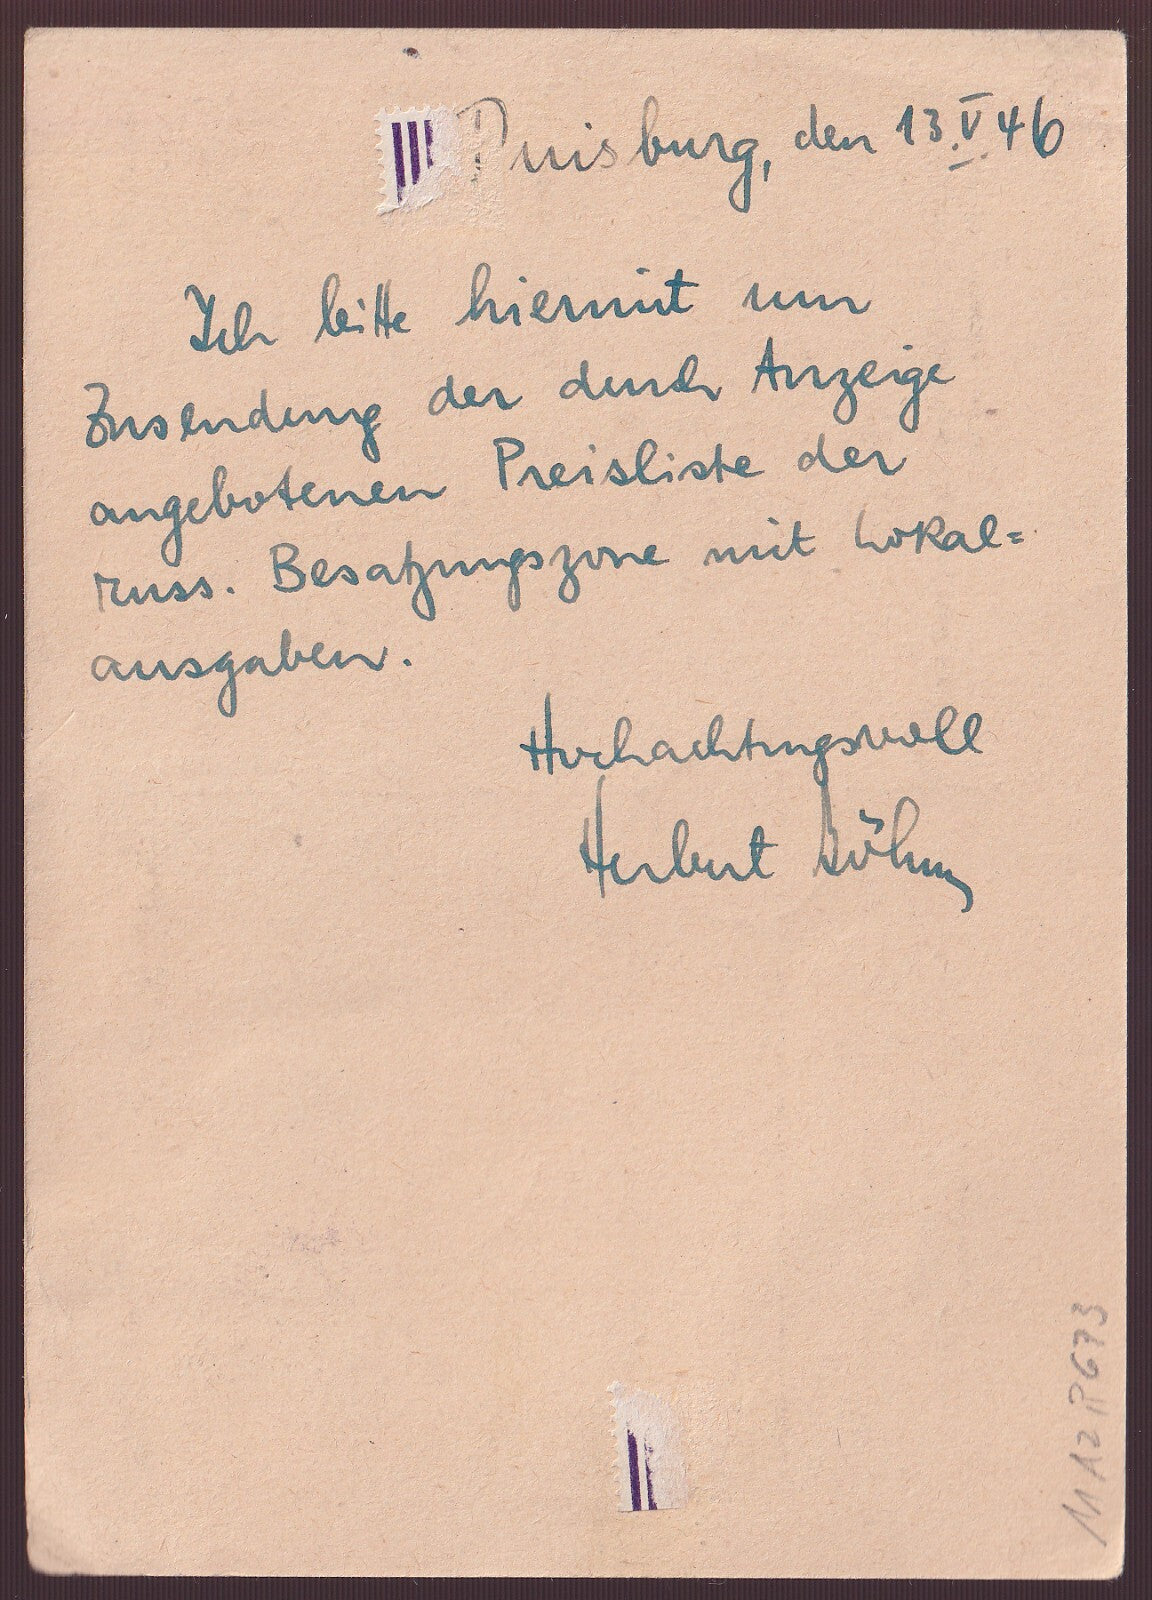 Duisburg, den 13.V.46
Ich bitte hiermit um
Zusendung der durch Anzeige
angebotenen Preisliste der
russ. Besatzungszone mit Lokal=
ausgaben.
Hochachtungsvoll
Herbert Böhm